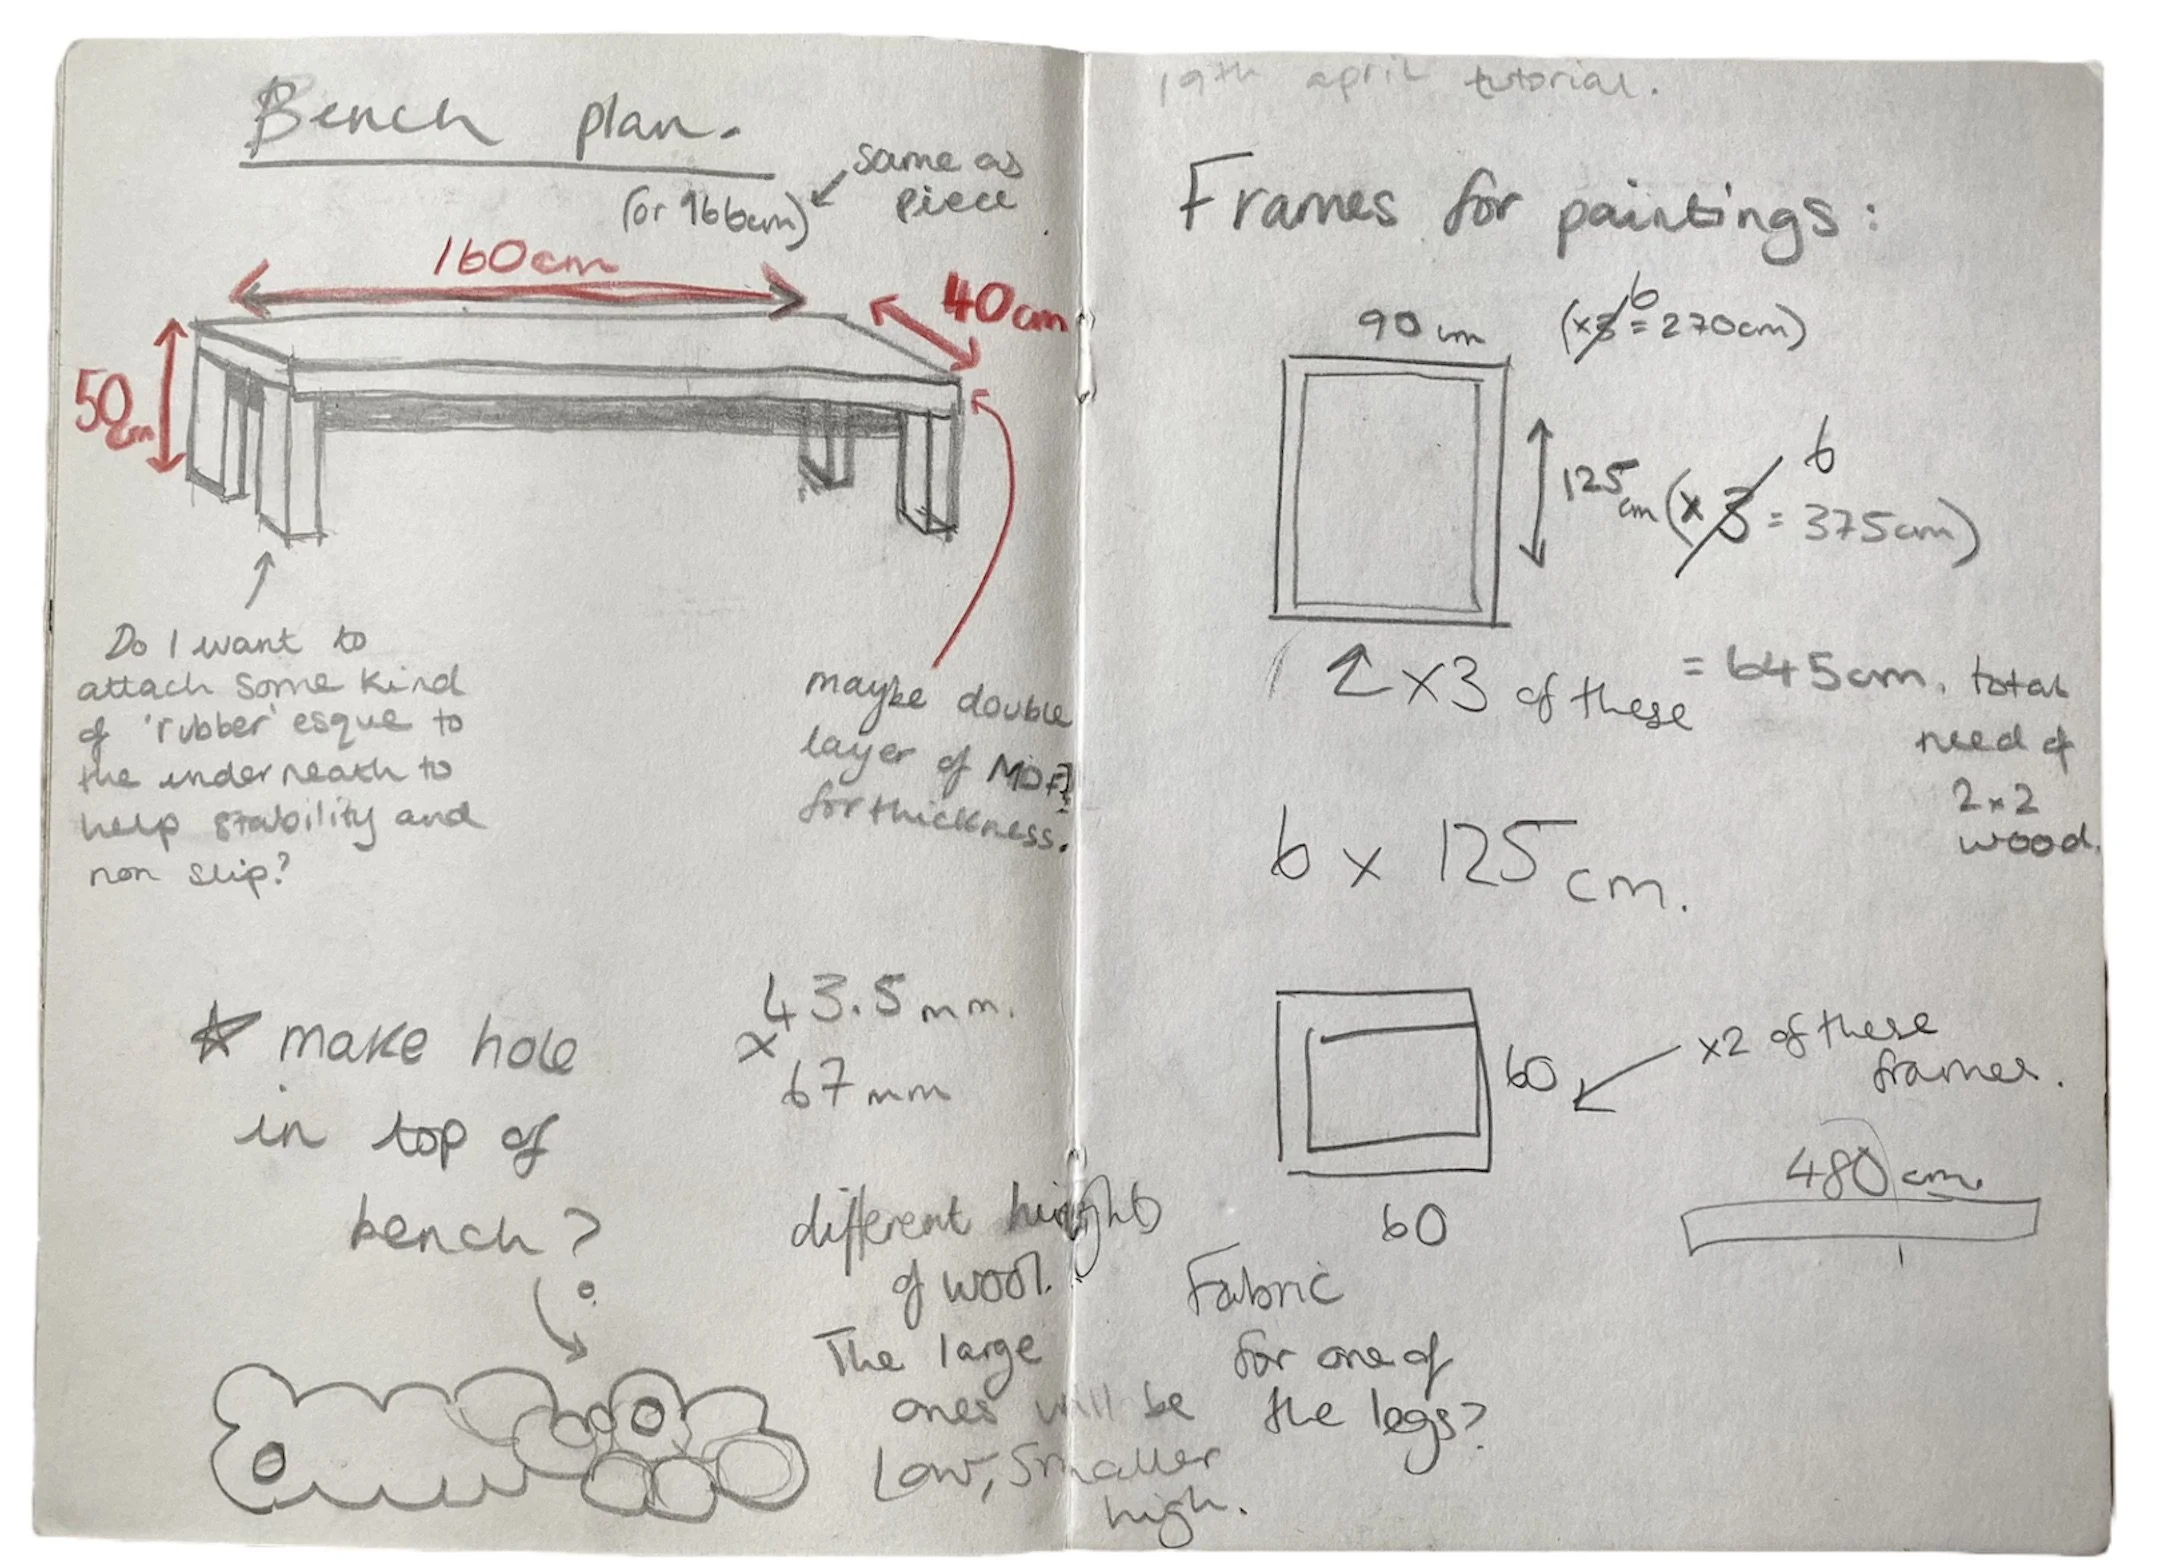 Bench plan.
same as
piece
(or 166cm)
160cm
40cm
50cm
Do I want to
attach some kind
of 'rubber' esque to
the underneath to
help stability and
non slip?
maybe double
layer of MDF?
for thickness.
* make hole
in top of
bench?
43.5mm.
x
67mm
different heights
of wool.
The large
ones will be
Low, Smaller
high.
19th april tutorial.
Frames for paintings:
90cm (x3 6 = 270cm)
125cm (x3 6 = 375cm)
x3 of these
= 645cm. total
need of
2x2
wood.
6 x 125cm.
60
x2 of these
frames.
60
480cm.
Fabric
for one of
the legs?